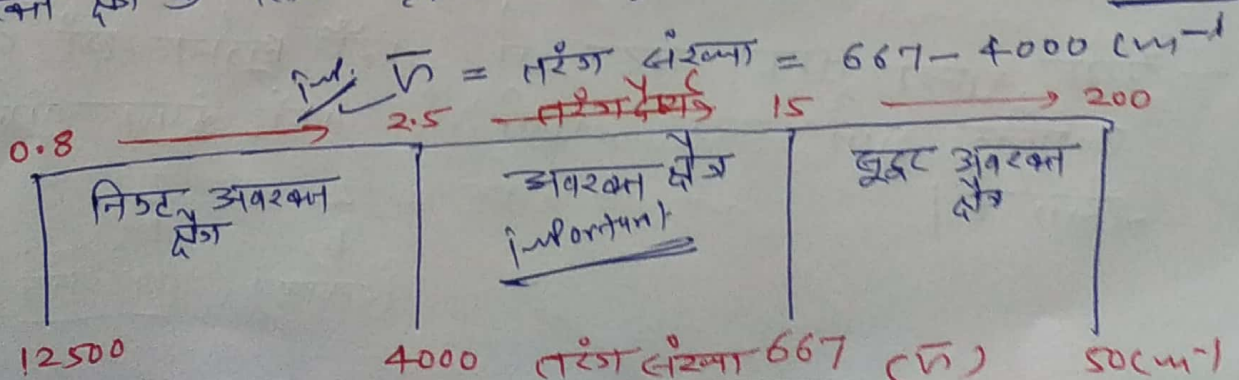 imp. ν̅ = तरंग संख्या = 667 - 4000 cm⁻¹
0.8 → 2.5 तरंगदैर्ध्य 15 → 200
निकट अवरक्त क्षेत्र
अवरक्त क्षेत्र
important
सुदूर अवरक्त क्षेत्र
12500 4000 तरंग संख्या 667 (ν̅) 50cm⁻¹